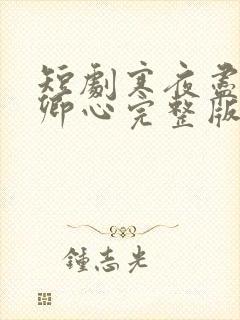 短劇寒夜盡
卿心完整版
鍾志光